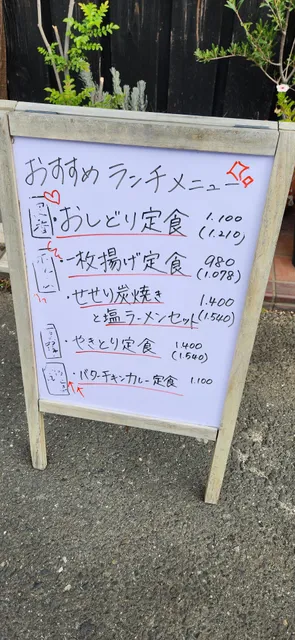 おすすめ ランチメニュー
・おしどり定食 1.100
(1.210)
・一枚揚げ定食 980
(1.078)
・せせり炭焼き 1.400
と塩ラーメンセット (1.540)
・やきとり定食 1.400
(1.540)
・バターチキンカレー定食 1.100